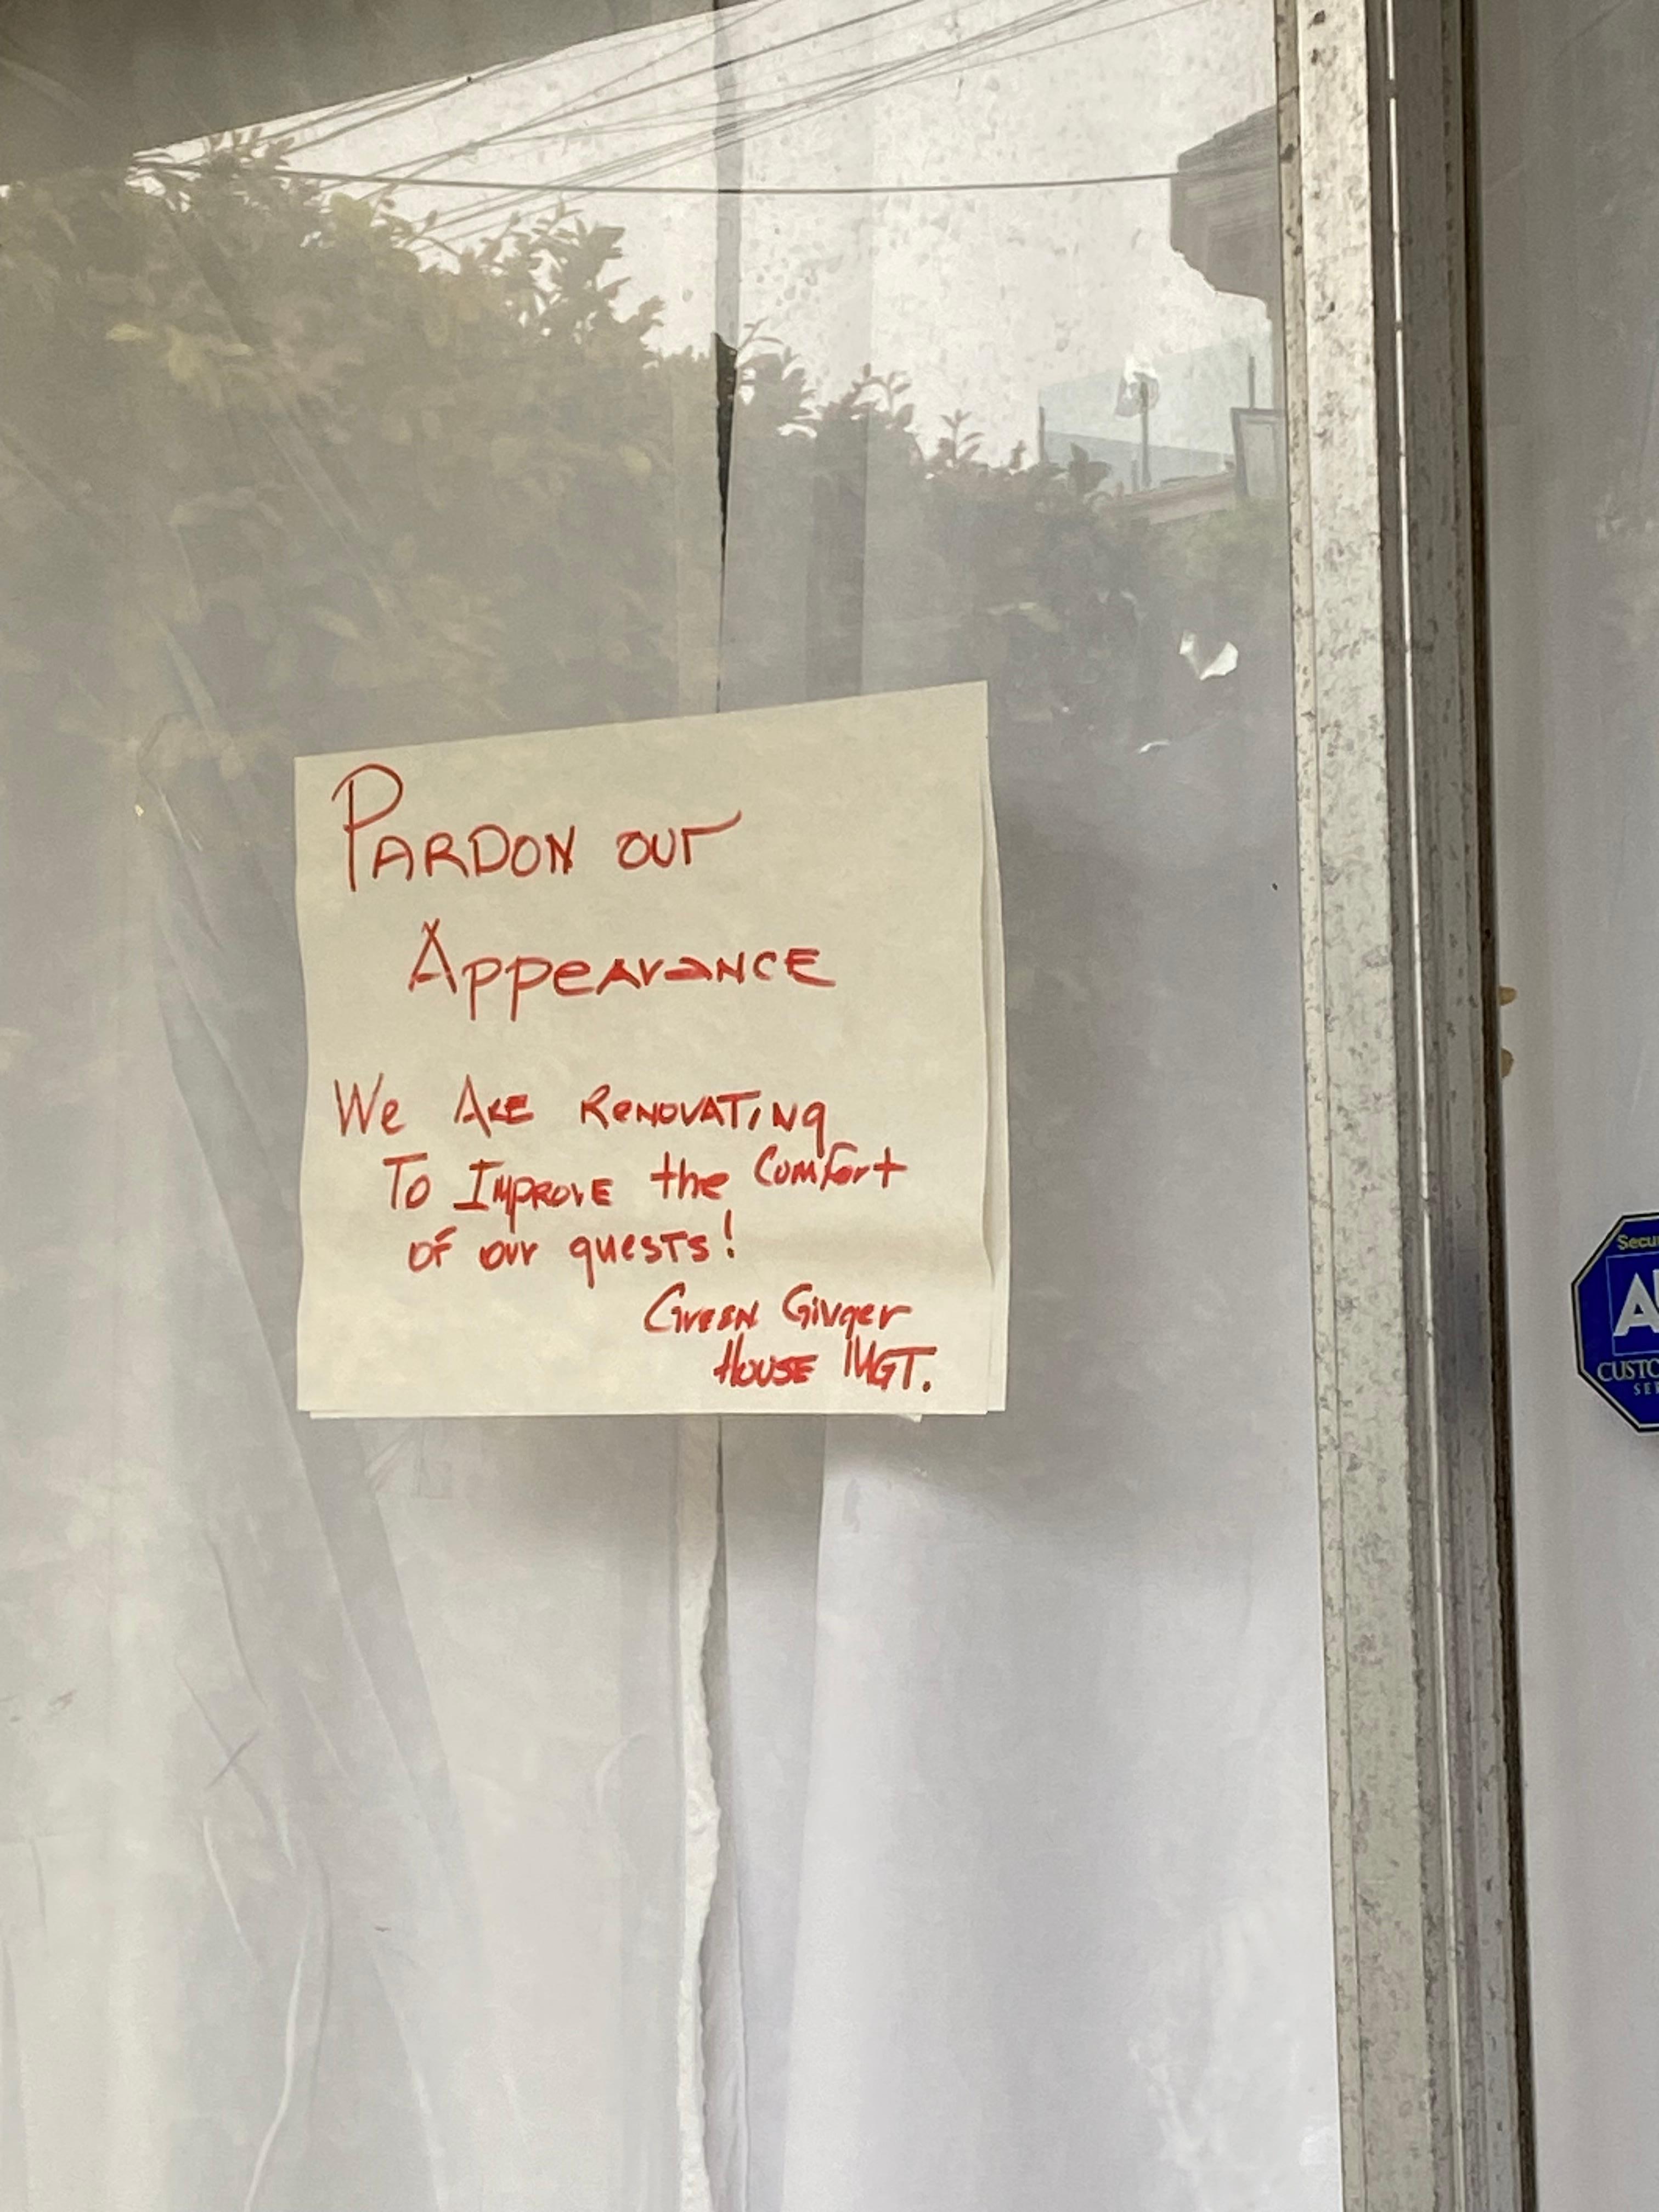 PARDON our
AppeArANCE
We ARE RENOVATINg
To IMPROVE the ComFort
of our guests!
Green Ginger
House MGT.
Secu
A
CUSTO
SE